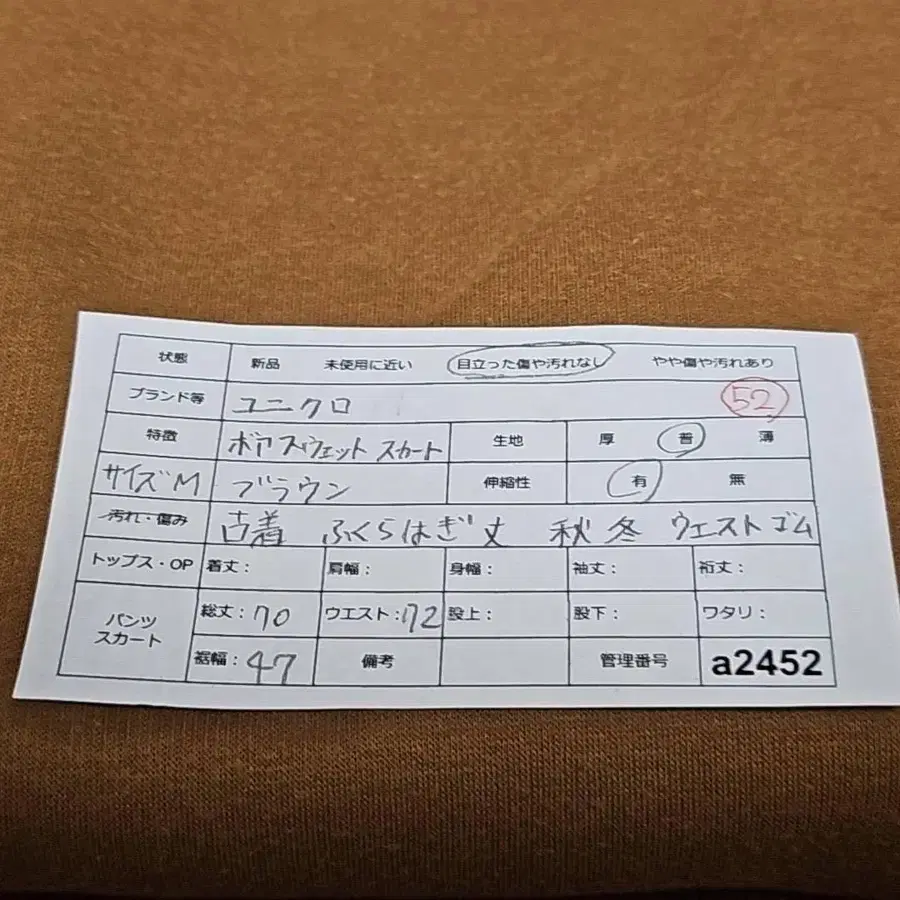 状態 新品 未使用に近い 目立った傷や汚れなし やや傷や汚れあり
ブランド等 ユニクロ 52
特徴 ボアスウェット スカート 生地 厚 普 薄
サイズM ブラウン 伸縮性 有 無
汚れ・傷み 古着 ふくらはぎ丈 秋冬 ウエストゴム
トップス・OP 着丈: 肩幅: 身幅: 袖丈: 裄丈:
パンツ スカート 総丈:70 ウエスト:72 股上: 股下: ワタリ:
裾幅:47 備考 管理番号 a2452